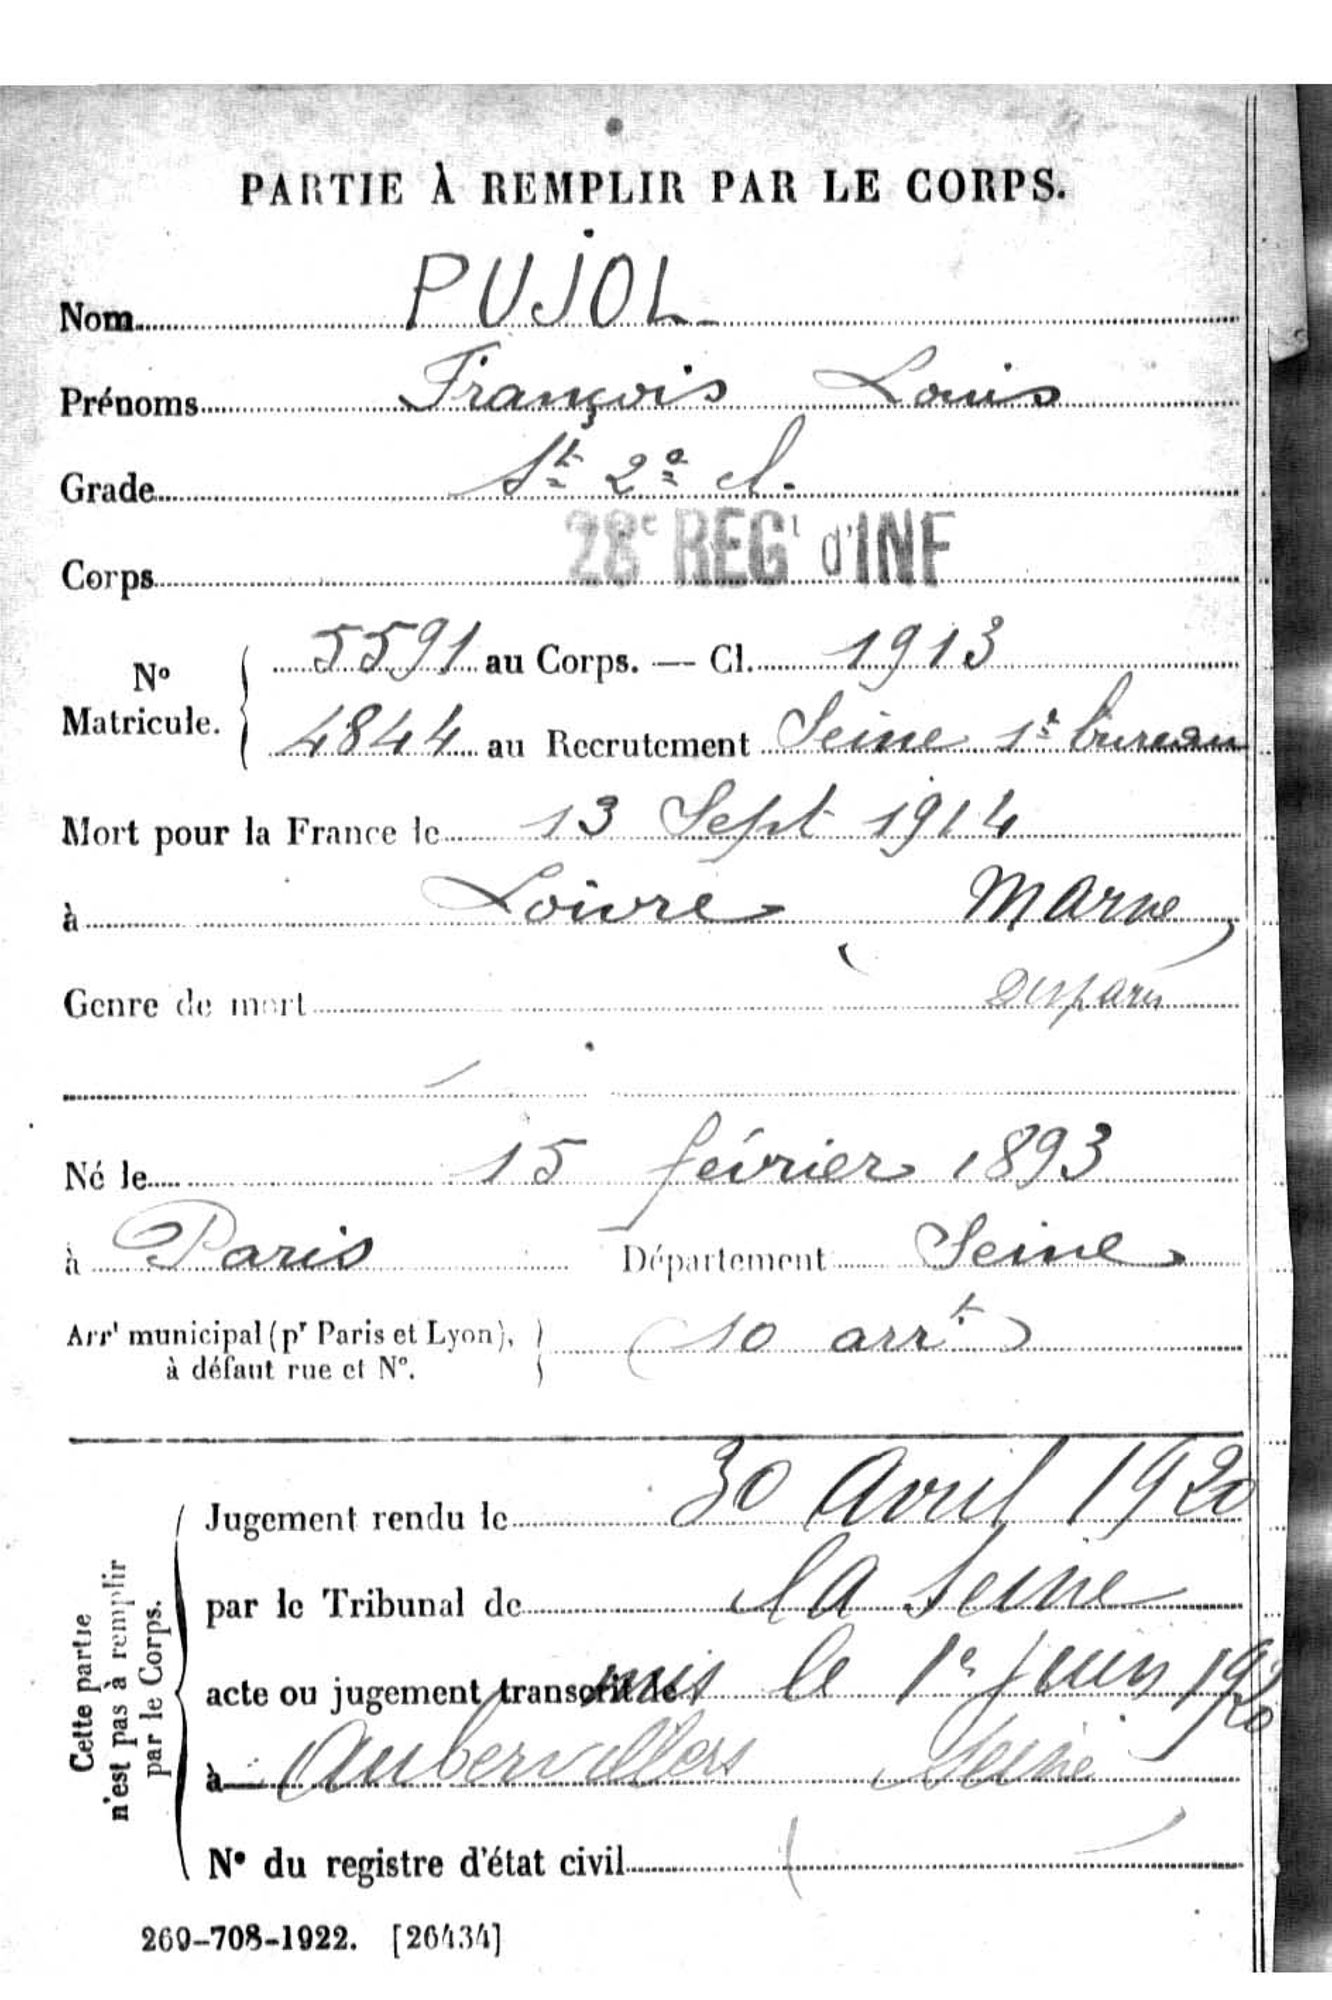 PARTIE À REMPLIR PAR LE CORPS.
Nom PUJOL
Prénoms François Louis
Grade St 2e cl.
Corps 28e REGt d'INF
No Matricule. 5591 au Corps. — Cl. 1913
4844 au Recrutement Seine 1r bureau
Mort pour la France le 13 Sept 1914
à Loivre Marne
Genre de mort Disparu
Né le 15 février 1893
à Paris Département Seine
Arrt municipal (pr Paris et Lyon), à défaut rue et No. (10 arrt)
Cette partie n'est pas à remplir par le Corps.
Jugement rendu le 30 Avril 1920
par le Tribunal de la Seine
acte ou jugement transcrit le le 1r Juin 1920
à Aubervilliers Seine
No du registre d'état civil
269-708-1922. [26434]